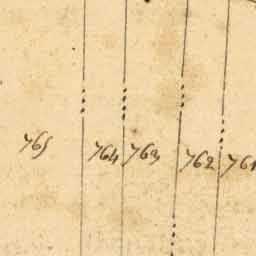 765 764 763 762 761